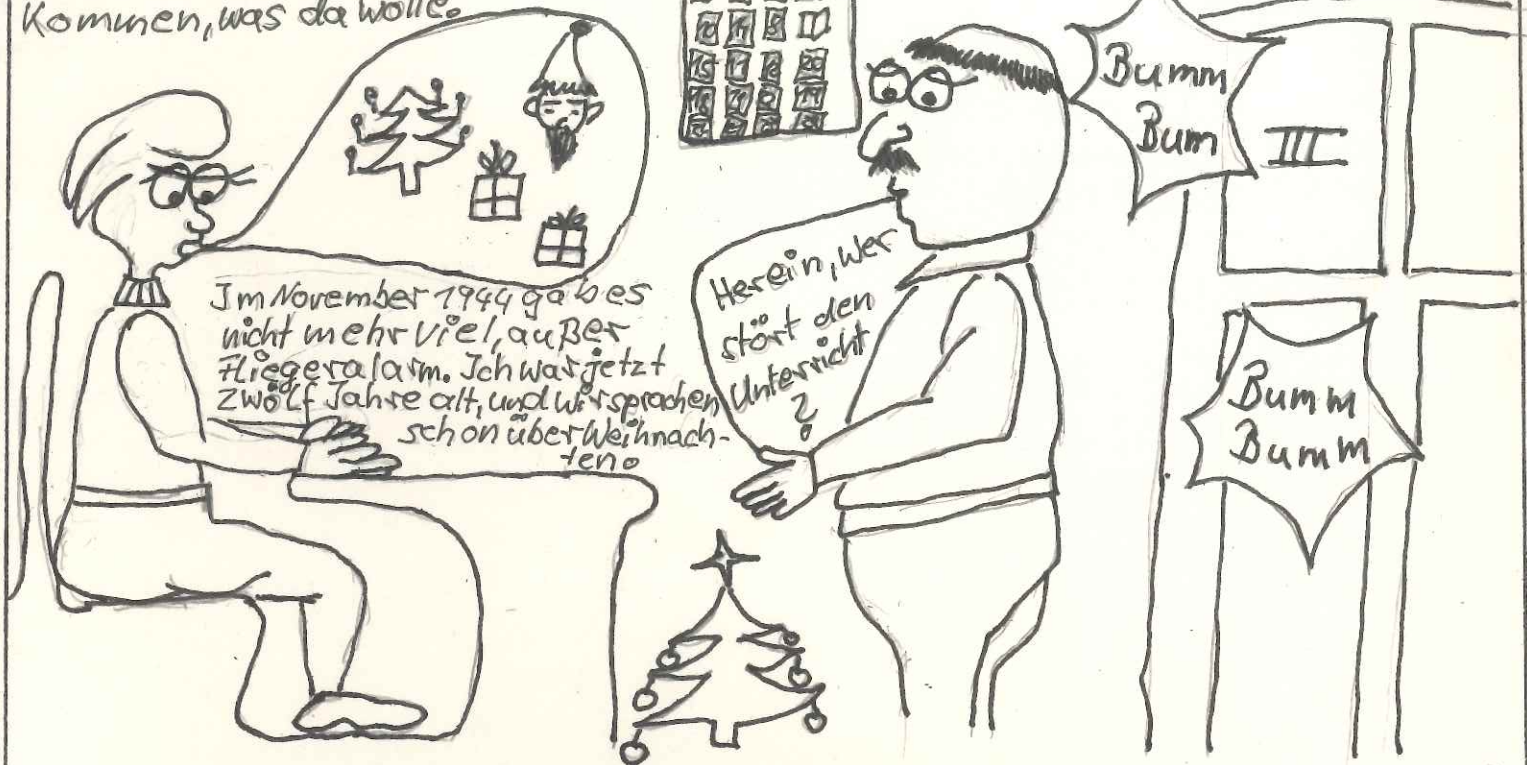 Kommen, was da wolle.
Im November 1944 gab es
nicht mehr viel, außer
Fliegeralarm. Ich war jetzt
zwölf Jahre alt, und wir sprachen
schon über Weihnach-
ten.
Herein, wer
stört den
Unterricht
?
Bumm
Bum
III
Bumm
Bumm